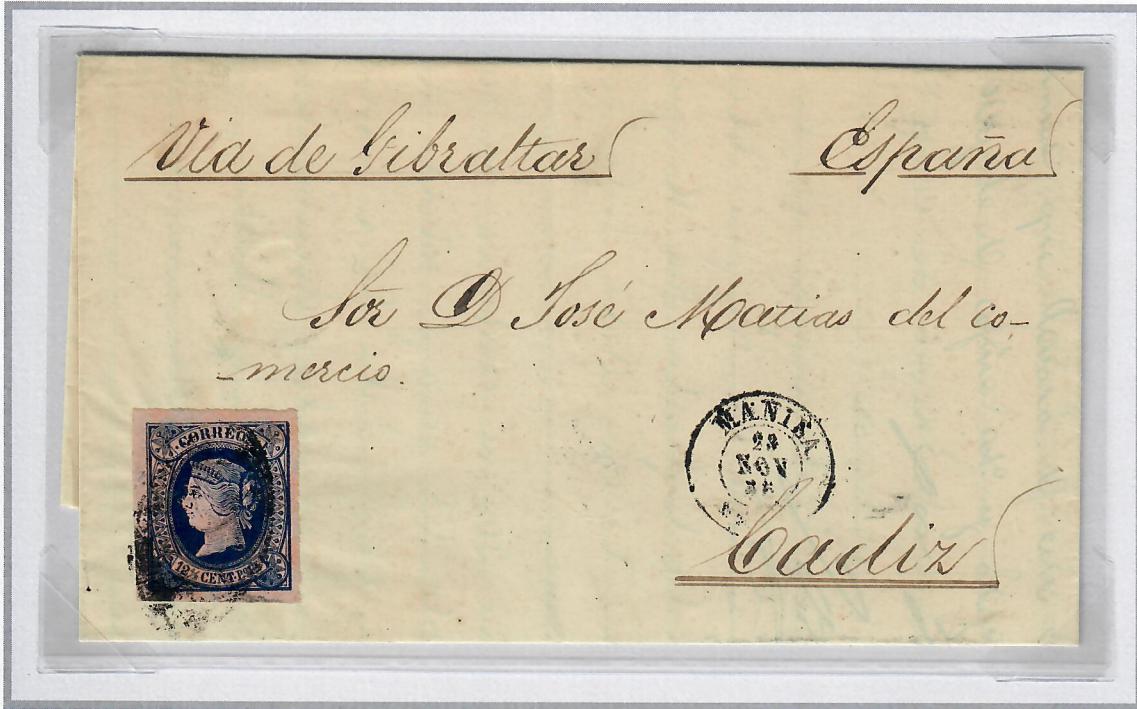 Via de Gibraltar España
Sor D José Matias del co-
-mercio.
CORREOS
12 4/8 CENT PS FE
MANILA
23
NOV
Cadiz